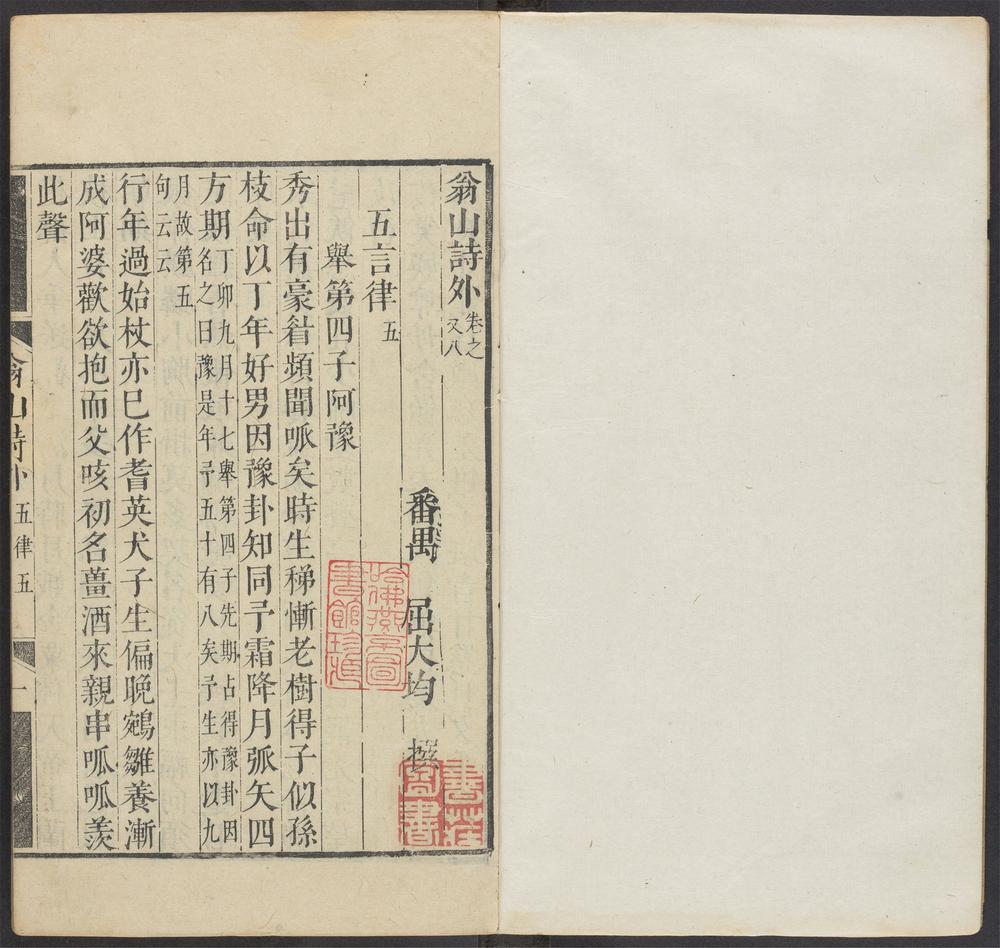 翁山詩外 卷之又八
番禺 屈大均 撰
五言律 五
舉第四子阿豫
秀出有豪睂頻聞哌矣時生稊慚老樹得子似孫
枝命以丁年好男因豫卦知同予霜降月弧矢四
方期 丁卯九月十七舉第四子先期占得豫卦因
名之曰豫是年予五十有八矣予生亦以九
月故第五
句云云
行年過始杖亦巳作耆英犬子生偏晚鵷雛養漸
成阿婆歡欲抱而父咳初名薑酒來親串呱呱羨
此聲
翁山詩外 五律五 一
哈佛燕京圖
書館珍藏